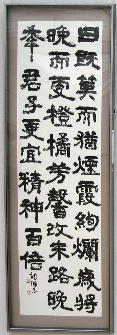 日既莫而猶煙霞絢爛歲將
晚而更橙橘芳馨故末路晚
年君子更宜精神百倍